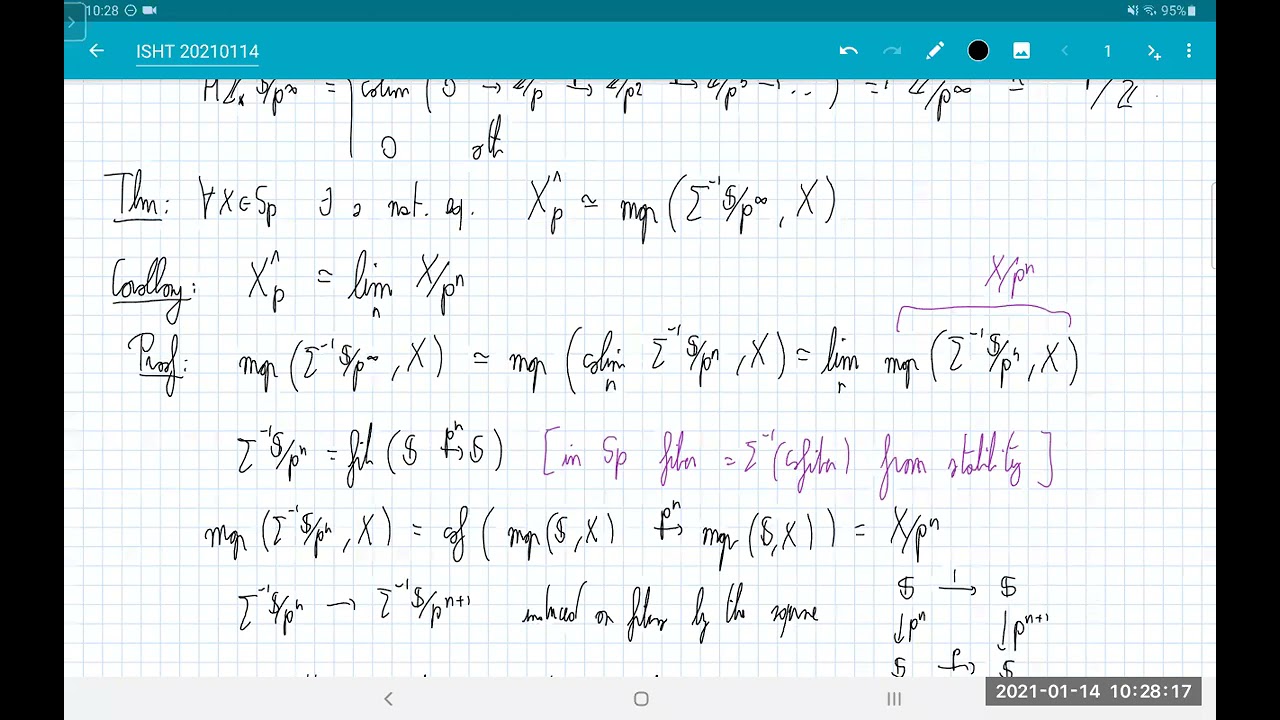 10:28 95%
ISHT 20210114 1
= colim ( 0 → ℤ/p → ℤ/p² → ℤ/p³ → ... ) = ℤ/p^∞
0 oth
Thm: ∀ X ∈ Sp ∃ a nat. eq. X_p^∧ ≃ map ( Σ^{-1} 𝕊/p^∞ , X )
Corollary: X_p^∧ = lim_n X/p^n
X/p^n
Proof: map ( Σ^{-1} 𝕊/p^∞ , X ) ≃ map ( colim_n Σ^{-1} 𝕊/p^n , X ) = lim_n map ( Σ^{-1} 𝕊/p^n , X )
Σ^{-1} 𝕊/p^n = fib ( 𝕊 →^{p^n} 𝕊 ) [ in Sp fiber = Σ^{-1} (cofiber) from stability ]
map ( Σ^{-1} 𝕊/p^n , X ) = cof ( map (𝕊, X) →^{p^n} map (𝕊, X) ) = X/p^n
Σ^{-1} 𝕊/p^n → Σ^{-1} 𝕊/p^{n+1} induced on fibers by the square
𝕊 →^1 𝕊
↓ p^n ↓ p^{n+1}
𝕊 →^p 𝕊
2021-01-14 10:28:17